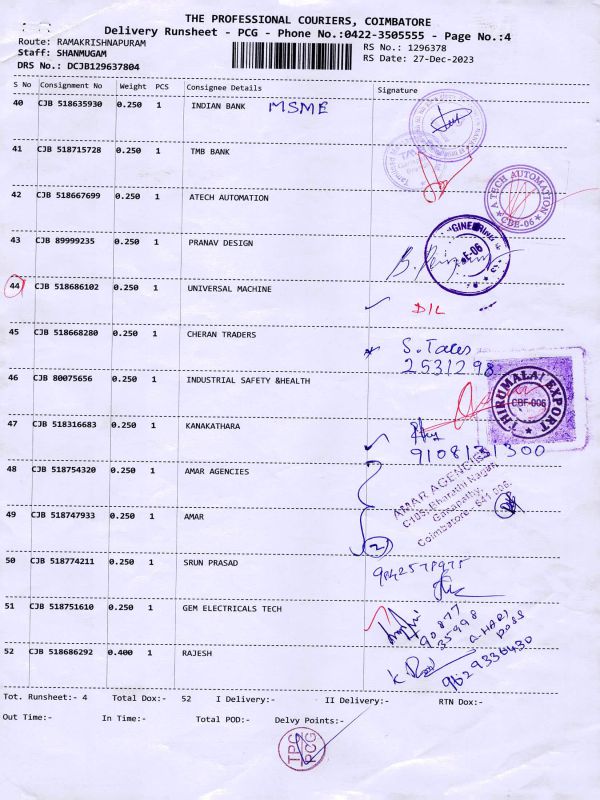 THE PROFESSIONAL COURIERS, COIMBATORE
Delivery Runsheet - PCG - Phone No.:0422-3505555 - Page No.:4
Route: RAMAKRISHNAPURAM
Staff: SHANMUGAM
DRS No.: DCJB129637804
RS No.: 1296378
RS Date: 27-Dec-2023
S No Consignment No Weight PCS Consignee Details Signature
40 CJB 518635930 0.250 1 INDIAN BANK MSME
41 CJB 518715728 0.250 1 TMB BANK
42 CJB 518667699 0.250 1 ATECH AUTOMATION
A TECH AUTOMATION
CBE-06
43 CJB 89999235 0.250 1 PRANAV DESIGN
44 CJB 518686102 0.250 1 UNIVERSAL MACHINE D/L
45 CJB 518668280 0.250 1 CHERAN TRADERS
2531298
46 CJB 80075656 0.250 1 INDUSTRIAL SAFETY &HEALTH
THIRUMALAI EXPORT
CBE-006
47 CJB 518316683 0.250 1 KANAKATHARA
9108131300
48 CJB 518754320 0.250 1 AMAR AGENCIES
AMAR AGENCIES
Bharathi Nagar,
Ganapathy,
Coimbatore - 641 006.
49 CJB 518747933 0.250 1 AMAR
2
50 CJB 518774211 0.250 1 SRUN PRASAD
51 CJB 518751610 0.250 1 GEM ELECTRICALS TECH
90877
35998
52 CJB 518686292 0.400 1 RAJESH
HARI
DOSS
9629336430
Tot. Runsheet:- 4 Total Dox:- 52 I Delivery:- II Delivery:- RTN Dox:-
Out Time:- In Time:- Total POD:- Delvy Points:-
TPC
PCG